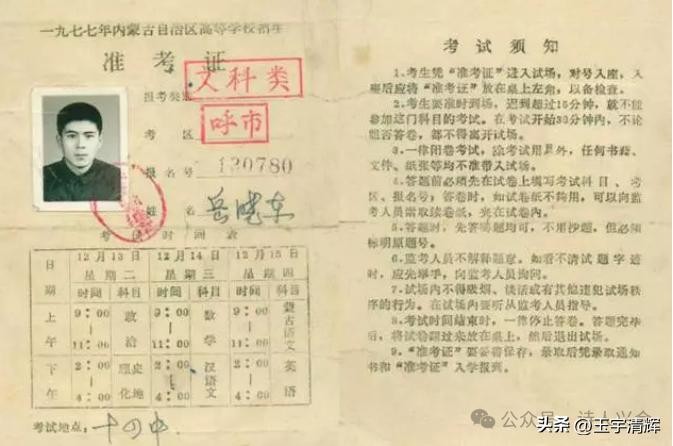 一九七七年内蒙古自治区高等学校招生
准考证
报考类别 文科类
考区 呼市
报名号 120780
姓名 岳晓东
考试时间表
日期 12月13日 星期二 12月14日 星期三 12月15日 星期四
时间 科目 时间 科目 时间 科目
上午 9:00—11:00 政治 9:00—11:00 数学 9:00—11:00 蒙古语文
下午 2:00—4:00 史地 理化 2:00—4:00 汉语文 2:00—4:00 英语
考试地点:十四中
考试须知
1.考生凭“准考证”进入试场,对号入座,入
座后应将“准考证”放在桌上左角,以备检查。
2.考生要准时到场,迟到超过15分钟,就不能
参加这门科目的考试。在考试开始30分钟内,不论
能否答卷,都不得离开试场。
3.一律闭卷考试,除考试用具外,任何书籍、
文件、纸张等均不准带入试场。
4.答题前必须先在试卷上填写考试科目、考
区、报名号;答卷时,如试卷纸不够用,可以向监
考人员索取续卷纸,夹在试卷内。
5.答题时,先答哪题均可,不用抄题,但必须
标明原题号。
6.监考人员不解释题意。如看不清试题字迹
时,应先举手,向监考人员询问。
7.试场内不得吸烟、谈话或有其他违犯试场秩
序的行为。在试场内要听从监考人员指导。
8.考试时间结束时,一律停止答卷。答题完毕
后,将试卷翻过来放在桌上,然后退出试场。
9.“准考证”要妥善保存,录取后凭录取通知
书和“准考证”入学报到。
公众号·诗人兴会
头条 @玉宇清辉